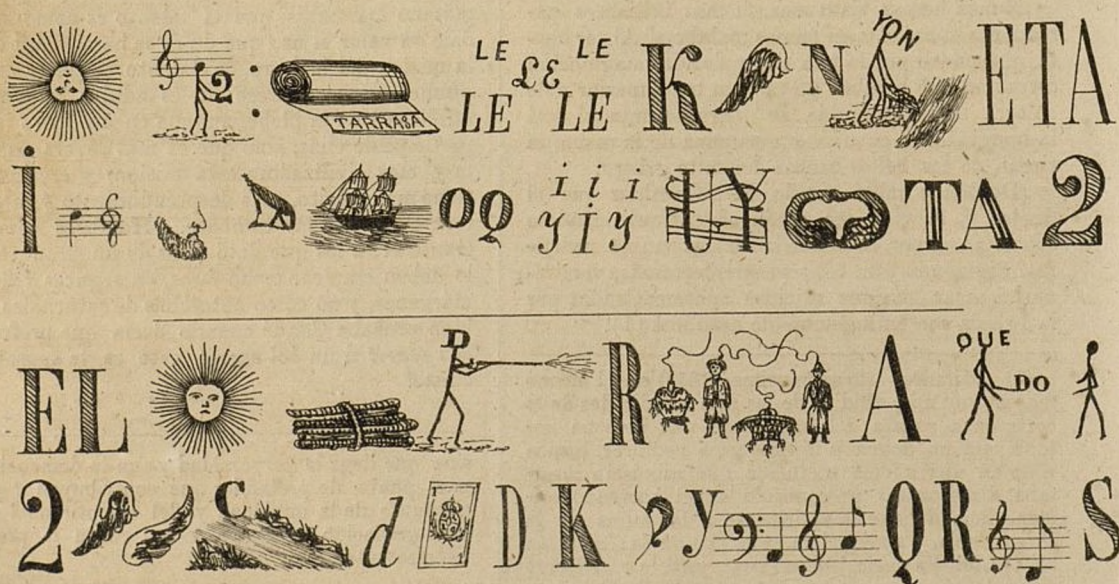 2 : TARRASA LE LE LE LE LE K N YON ETA
i OQ i i i y i y UY TA 2
EL D R A QUE DO
2 C d D K y QR S